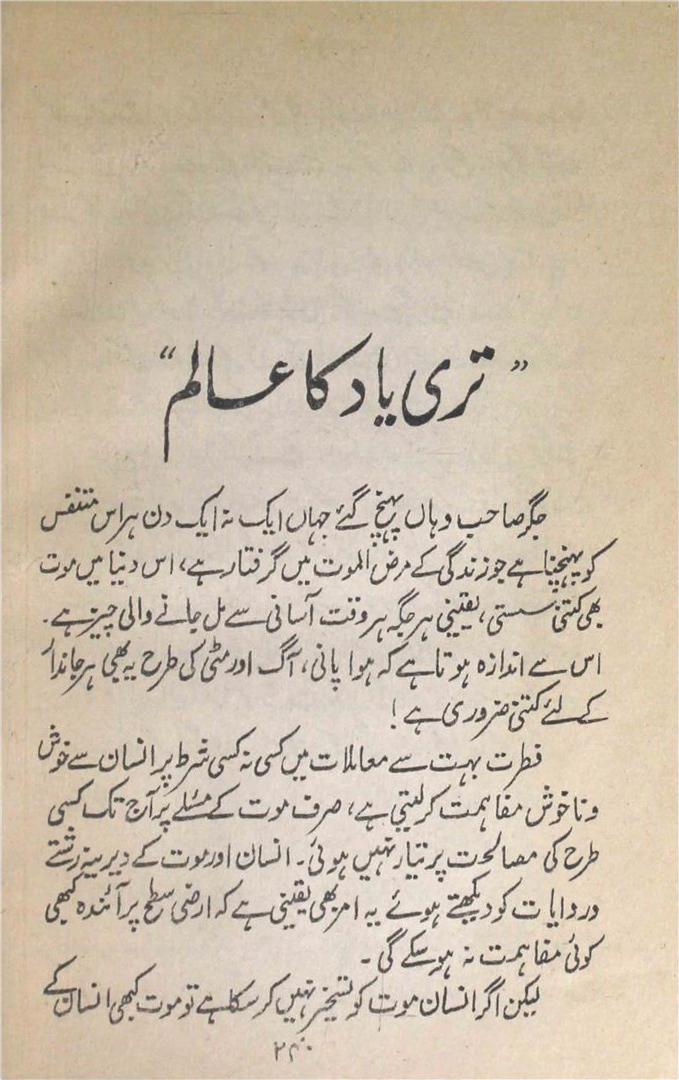 ”تری یاد کا عالم“
جگر صاحب وہاں پہنچ گئے جہاں ایک نہ ایک دن ہر اس متنفس
کو پہنچنا ہے جو زندگی کے مرض الموت میں گرفتار ہے، اس دنیا میں موت
بھی کتنی سستی، یقینی ہر جگہ ہر وقت آسانی سے مل جانے والی چیز ہے۔
اس سے اندازہ ہوتا ہے کہ ہوا پانی، آگ اور مٹی کی طرح یہ بھی ہر جاندار
کے لئے کتنی ضروری ہے!
فطرت بہت سے معاملات میں کسی نہ کسی شرط پر انسان سے خوش
و ناخوش مفاہمت کر لیتی ہے، صرف موت کے مسئلے پر آج تک کسی
طرح کی مصالحت پر تیار نہیں ہوئی۔ انسان اور موت کے دیرینہ رشتے
و روایات کو دیکھتے ہوئے یہ امر بھی یقینی ہے کہ ارضی سطح پر آئندہ کبھی
کوئی مفاہمت نہ ہو سکے گی۔
لیکن اگر انسان موت کو تسخیر نہیں کر سکا ہے تو موت کبھی انسان کے
۲۴۰